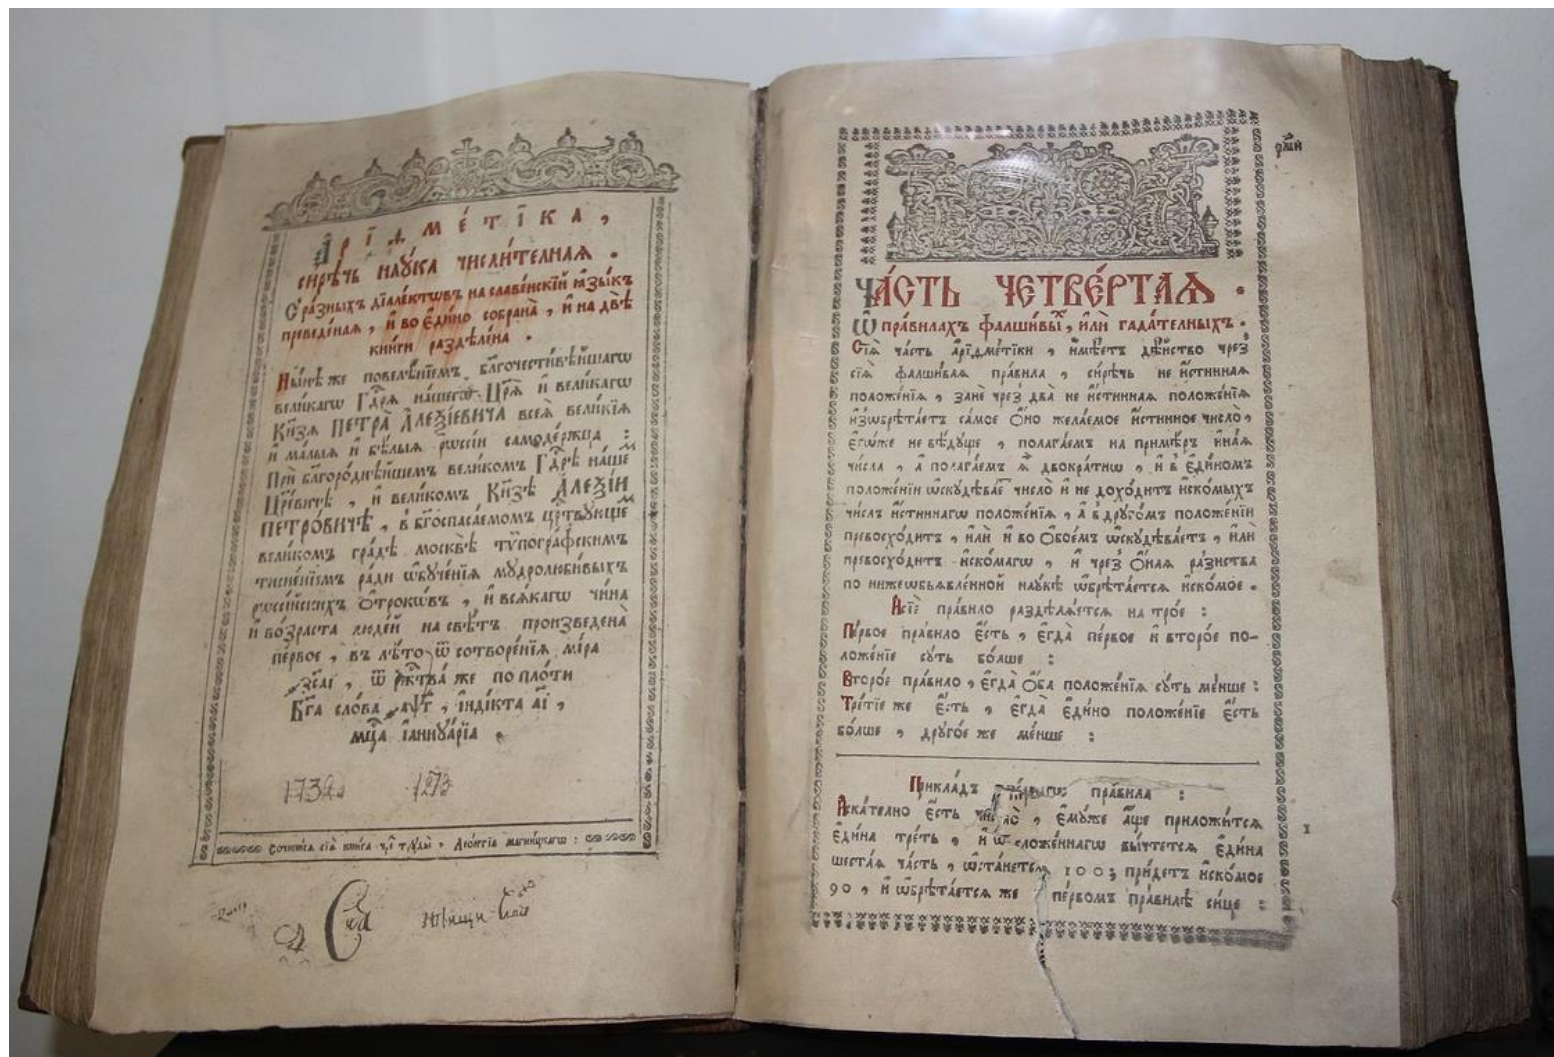 А҆РІ́ДМЕ́ТІКА,
сирѣ́чь нау́ка числи́телная.
С̾ ра́зныхъ дїале́ктѡвъ на славе́нскїй ꙗ҆зы́къ
преведе́ная, и҆ во є҆ди́но собрана̀, и҆ на двѣ̀
кни́ги раздѣлена̀.
Ны́нѣ же повелѣ́нїемъ бл҃гочести́вѣйшагѡ
вели́кагѡ Гдⷭ҇рѧ на́шегѡ Цр҃ѧ̀ и҆ вели́кагѡ
Кн҃зѧ ПЕТРА̀ А҆ЛЕѮІ́ЕВИЧА всеѧ̀ вели́кїѧ
и҆ ма́лыѧ и҆ бѣ́лыѧ рѡссі́и самоде́ржца :
Прѝ бл҃горо́днѣйшемъ вели́комъ Гдⷭ҇рѣ̀ на́шеⷨ
Цр҃е́вичѣ, и҆ вели́комъ Кн҃зѣ А҆ЛЕѮІ́И
ПЕТРО́ВИЧѢ, в̾ бг҃оспаса́емомъ црⷭ҇твꙋ́ющеⷨ
вели́комъ гра́дѣ москвѣ̀ тѷпогра́фскимъ
тисне́нїемъ ра́ди ѡ҆бꙋче́нїѧ мꙋдролюби́выхъ
рѡссі́йскихъ ѻ҆́трокѡвъ, и҆ всѧ́кагѡ чи́на
и҆ во́зраста люде́й на свѣ́тъ произведена̀
пе́рвое, въ лѣ́то ѿ сотворе́нїѧ мі́ра
҂зса҃і, ѿ ржⷭ҇тва́ же по пло́ти
Бг҃а сло́ва ҂аѱ҃г, і҆нді́кта а҃і,
мцⷭ҇а і҆аннꙋа́рїа.
1732 1273
Сочини́сѧ сїѧ̀ кни́га чреⷥ трꙋды̀, Лео́нтїа магни́цкагѡ :
рм҃и
ЧА́СТЬ ЧЕТВЕ́РТАѦ.
Ѡ҆ пра́вилахъ фалши́выⷯ, и҆лѝ гада́телныхъ.
Сїѧ̀ ча́сть а҆рїдме́тїки, и҆мѣ́етъ дѣ́йство чреⷥ
сїѧ̀ фалши́ваѧ пра́вила, сирѣ́чь не и҆́стиннаѧ
положе́нїѧ, занѐ чреⷥ два̀ не и҆́стиннаѧ положе́нїѧ
и҆з̾ѡбрѣта́етъ са́мое ѻ҆́но жела́емое и҆́стинное число̀,
є҆гѡ́же не вѣ́дꙋще, полага́емъ на примѣ́ръ и҆на́ѧ
чи́сла, а҆ полага́емъ ѧ҆̀ двокра́тнѡ, и҆ в̾ є҆ди́номъ
положе́нїи ѡ҆скꙋдѣва́еⷮ число̀ и҆ не дохо́дитъ и҆ско́мыхъ
чи́слъ и҆́стиннагѡ положе́нїѧ, а҆ в̾ дрꙋго́мъ положе́нїи
превосхо́дитъ, и҆лѝ и҆ во ѻ҆бое́мъ ѡ҆скꙋдѣва́етъ, и҆лѝ
превосхо́дитъ и҆ско́магѡ, и҆ чреⷥ ѻ҆́наѧ ра́знства
по нижеѡб̾ѧвле́нной наꙋ́кѣ ѡ҆брѣта́етсѧ и҆ско́мое.
И҆ сїѐ пра́вило раздѣлѧ́етсѧ на тро́е :
Пе́рвое пра́вило є҆́сть, є҆гда̀ пе́рвое и҆ второ́е по-
ложе́нїе сꙋ́ть бо́лше :
Второ́е пра́вило, є҆гда̀ ѻ҆́ба положе́нїѧ сꙋ́ть ме́нше :
Тре́тїе же є҆́сть, є҆гда̀ є҆ди́но положе́нїе є҆́сть
бо́лше, дрꙋго́е же ме́нше :
Прикла́дъ пе́рвагѡ пра́вила :
И҆ска́телно є҆́сть число̀, є҆мꙋ́же а҆́ще приложи́тсѧ
є҆ди́на тре́ть, и҆ ѿ сложе́ннагѡ вы́чтетсѧ є҆ди́на
шеста́ѧ ча́сть, ѡ҆ста́нетсѧ 100; прїи́детъ и҆ско́мое
90, и҆ ѡ҆брѣта́етсѧ же пе́рвомъ пра́вилѣ си́це :
1